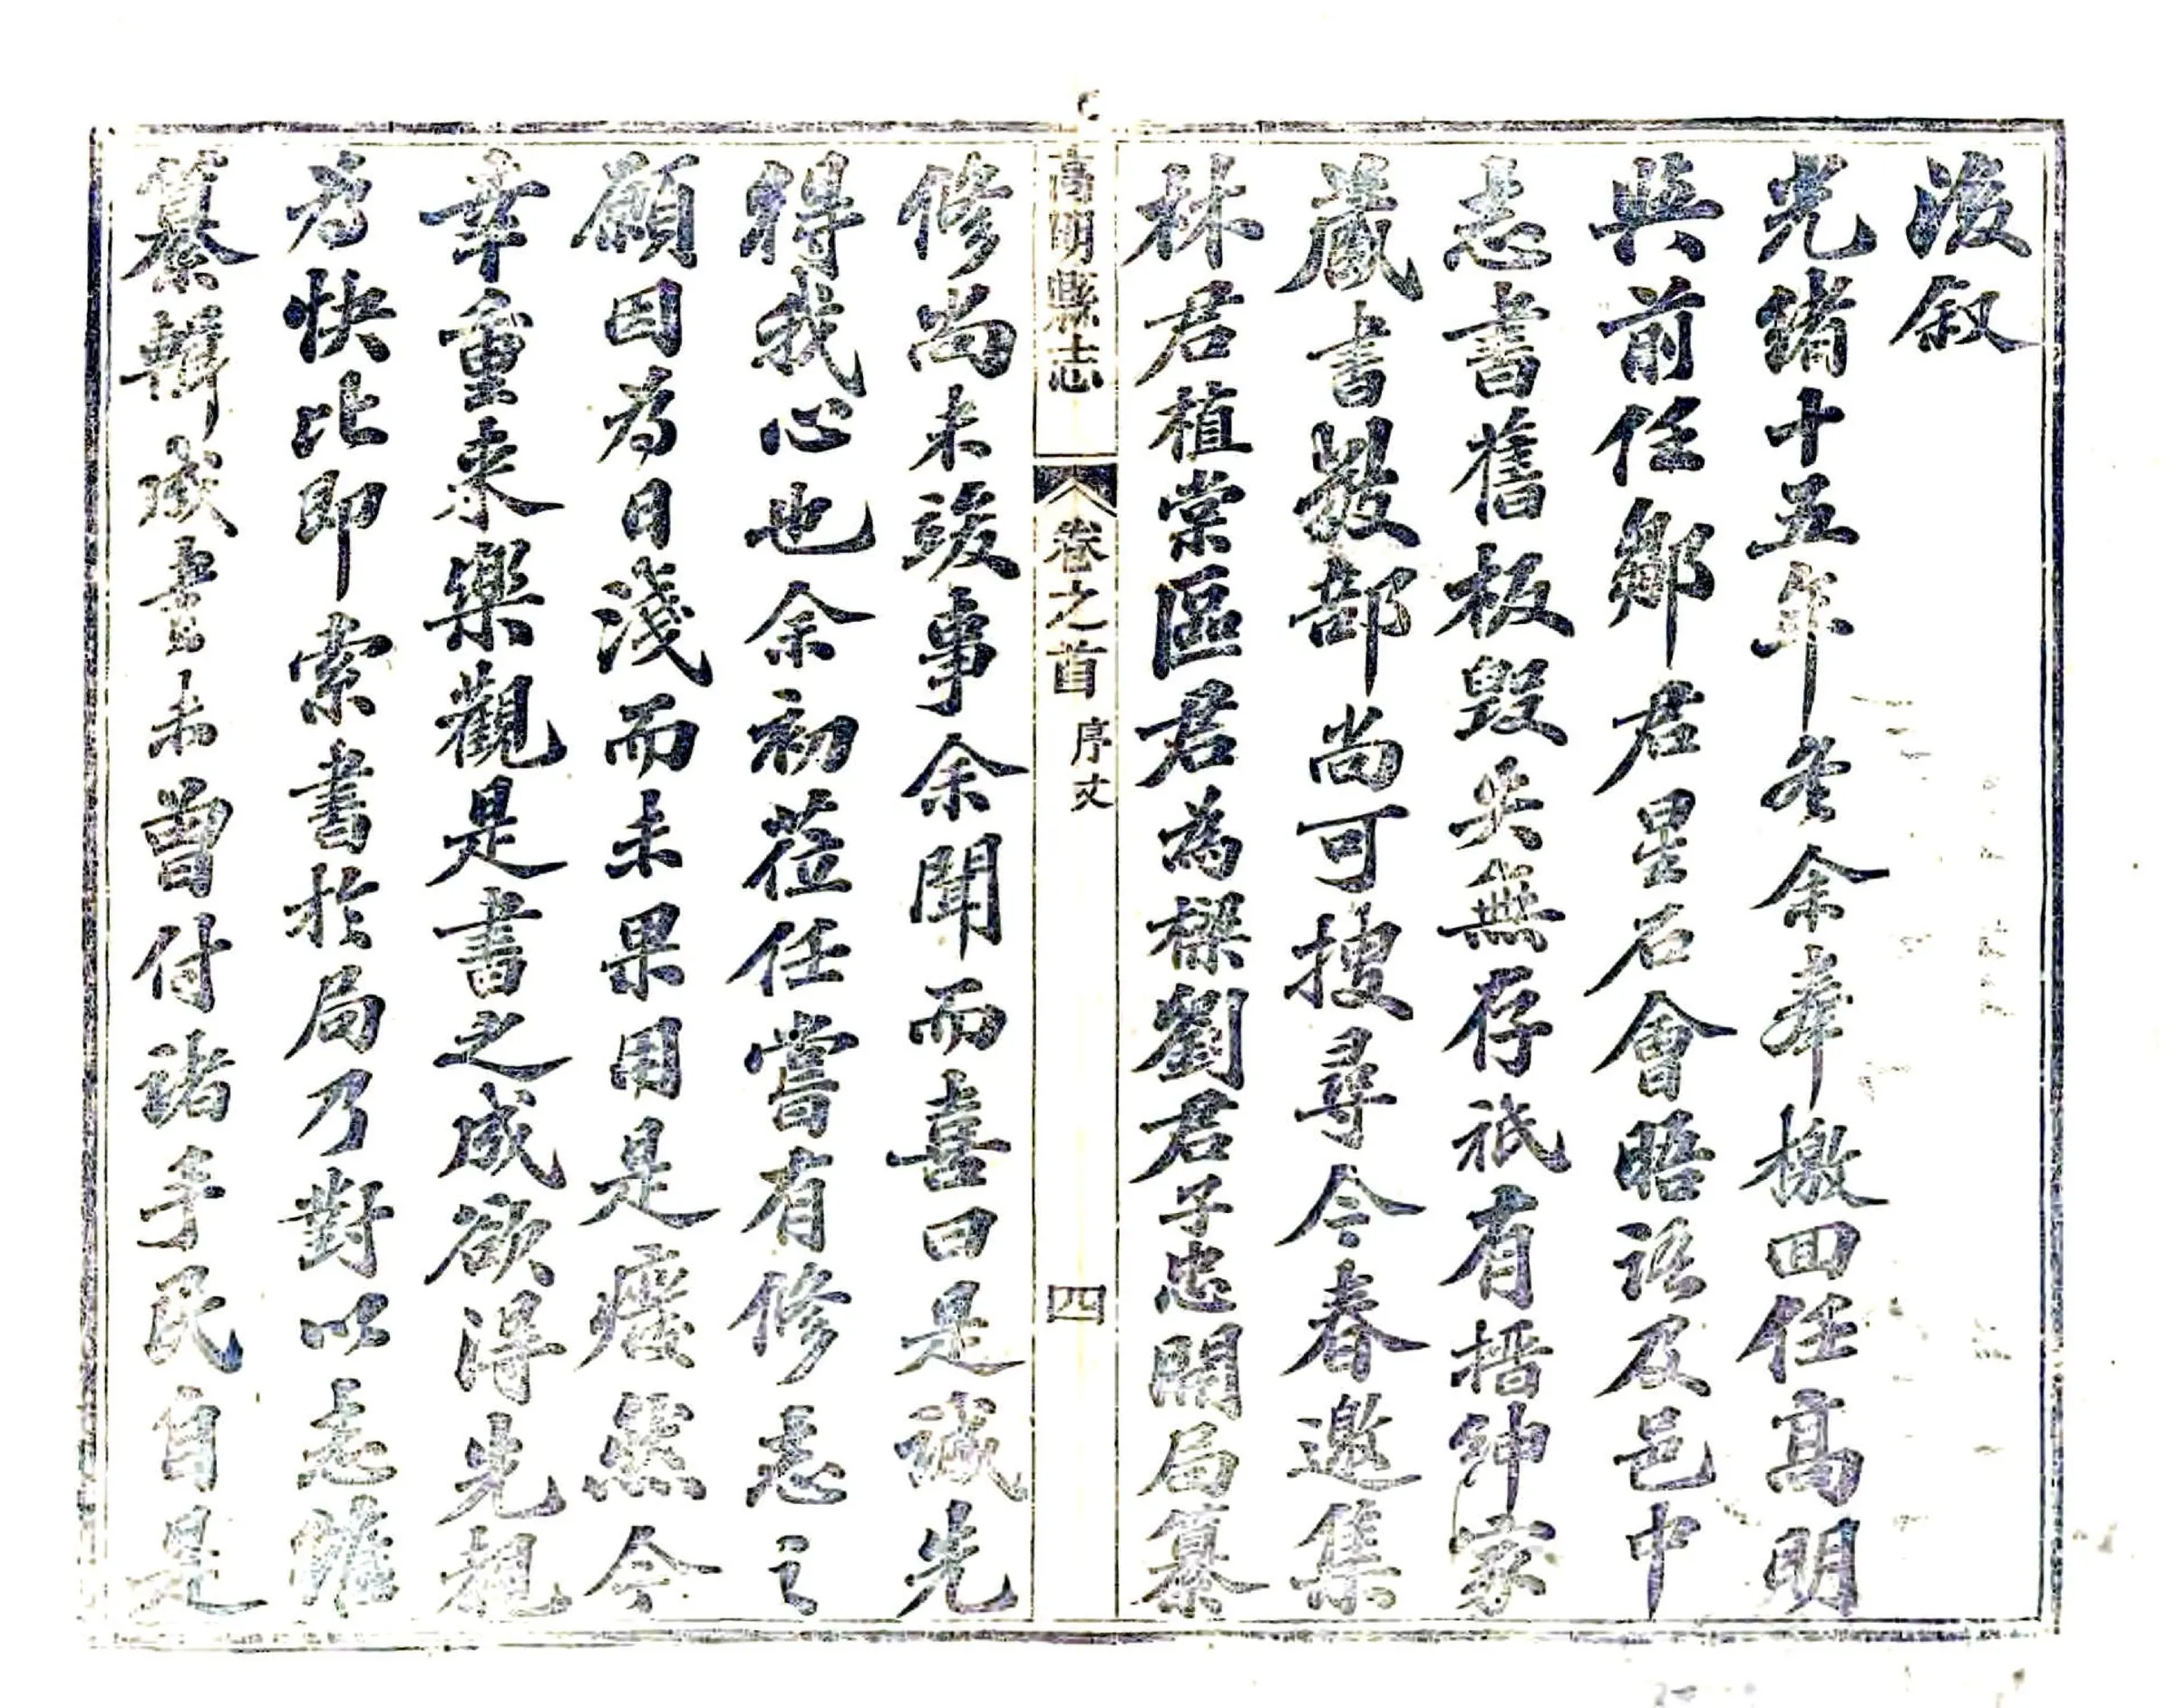 後叙
光緒十五年冬余奉檄回任高明
與前任鄒君星石會晤語及邑中
志書舊板毀失無存祇有搢紳家
藏書數部尚可搜尋今春邀集
林君植棠區君為樑劉君子忠開局纂
高明縣志
卷之首
序文
四
修尚未竣事余聞而喜曰是誠先
得我心也余初莅任嘗有修志之
願因為日淺而未果用是疚然今
幸重来樂觀是書之成欲得先覩
為快比即索書於局乃對以志雖
纂輯成書未曾付諸手民自是